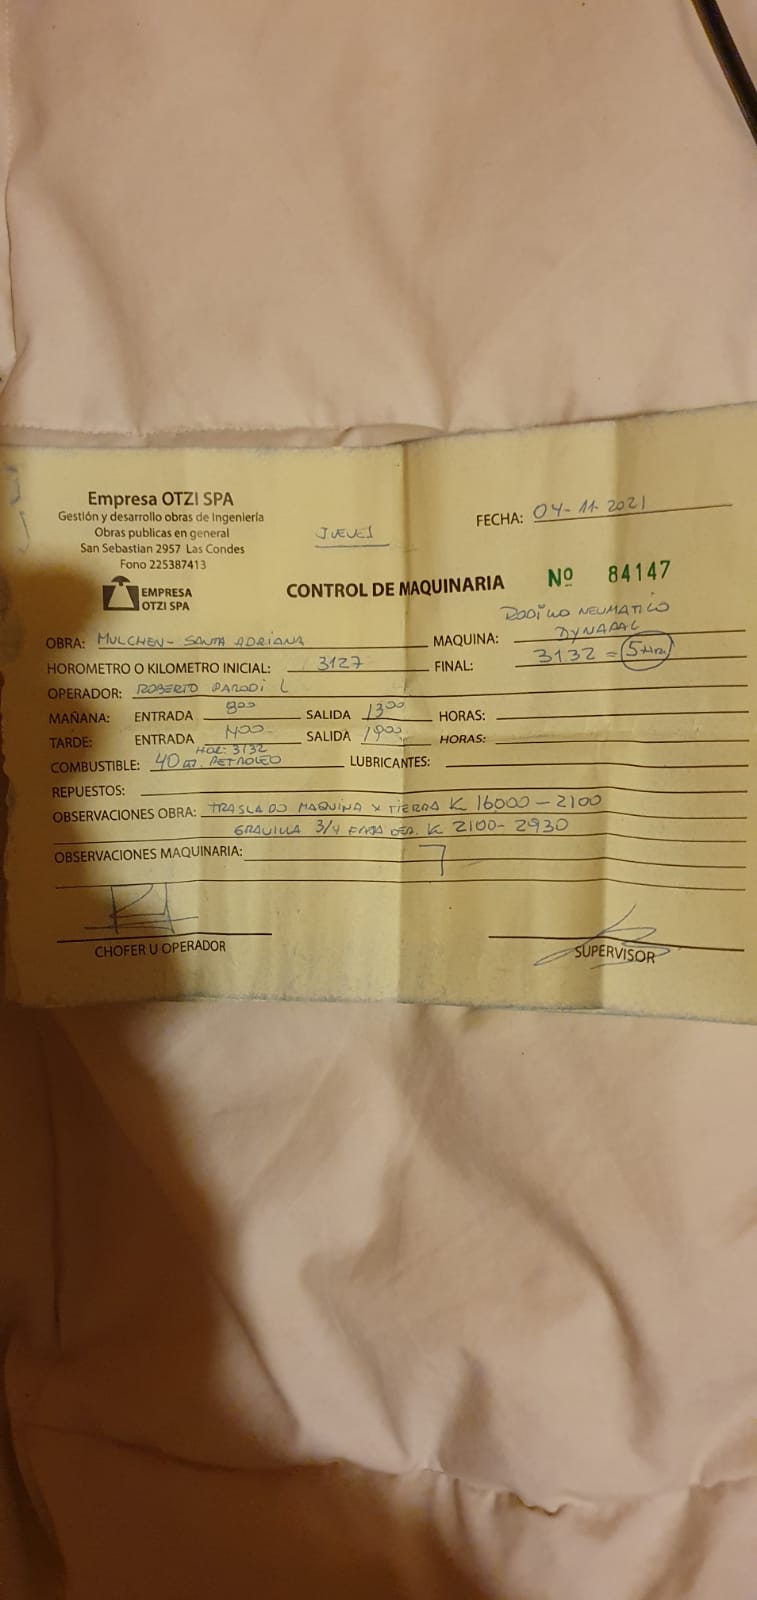 Empresa OTZI SPA
Gestión y desarrollo obras de Ingeniería
Obras publicas en general
San Sebastian 2957 Las Condes
Fono 225387413
EMPRESA
OTZI SPA
JUEVES
FECHA: 04-11-2021
CONTROL DE MAQUINARIA Nº 84147
OBRA: MULCHEN - SANTA ADRIANA
MAQUINA: RODILLO NEUMATICO
DYNAPAC
HOROMETRO O KILOMETRO INICIAL: 3127 FINAL: 3132 = 5 Hrs.
OPERADOR: ROBERTO PARODI L
MAÑANA: ENTRADA 800 SALIDA 1300 HORAS:
TARDE: ENTRADA 1400 SALIDA 1900 HORAS:
HOR: 3132
COMBUSTIBLE: 40 PETROLEO LUBRICANTES:
REPUESTOS:
OBSERVACIONES OBRA: TRASLADO MAQUINA X TIERRA K 16000 - 2100
GRAVILLA 3/4 FAJA DER. K 2100 - 2930
OBSERVACIONES MAQUINARIA:
CHOFER U OPERADOR
SUPERVISOR